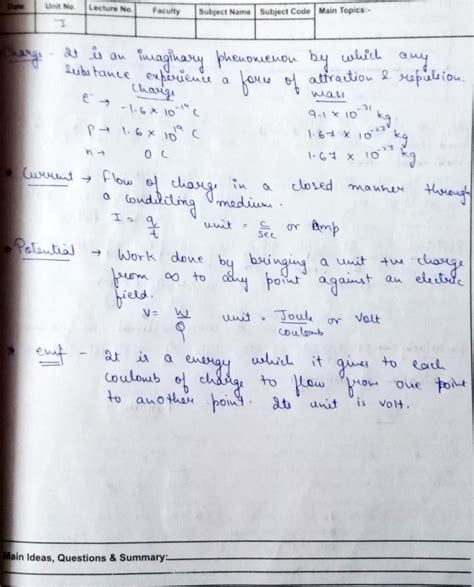 Date Unit No. Lecture No. Faculty Subject Name Subject Code Main Topics:-
I
Charge - It is an imaginary phenomenon by which any
substance experience a force of attraction & repulsion.
Charge mass
e⁻ → -1.6 × 10⁻¹⁹ C 9.1 × 10⁻³¹ kg
P → 1.6 × 10¹⁹ C 1.67 × 10⁻²⁷ kg
n → 0 C 1.67 × 10⁻²⁷ kg
* Current → Flow of charge in a closed manner through
a conducting medium.
I = q/t unit = C/sec or Amp
* Potential → Work done by bringing a unit +ve charge
from ∞ to any point against an electric
field.
V = W/Q unit = Joule/coulomb or Volt
* emf - It is a energy which it gives to each
coulomb of charge to flow from one point
to another point. Its unit is volt.
Main Ideas, Questions & Summary: